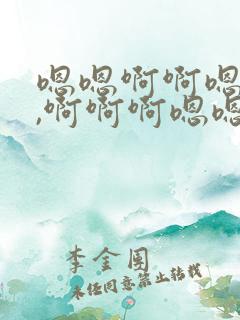 嗯嗯啊啊嗯
,啊啊啊嗯嗯
李金围
未经同意禁止转载